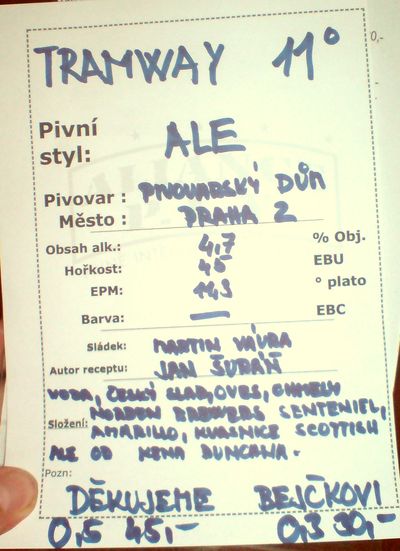 TRAMWAY 11°
0,-
Pivní styl: ALE
Pivovar : PIVOVARSKÝ DŮM
Město : PRAHA 2
Obsah alk.: 4,7 % Obj.
Hořkost: 45 EBU
EPM: ° plato
Barva: — EBC
Sládek: MARTIN VÁVRA
Autor receptu: JAN ŠURÁŇ
VODA, ČESKÝ SLAD, OVES, CHMELY
NORDEN BREWERS SENTENIEL,
Složení: AMARILLO, KVASNICE SCOTTISH
ALE OD KENA DUNCANA.
Pozn:
DĚKUJEME BEJČKOVI
0,5 45,- 0,3 30,-